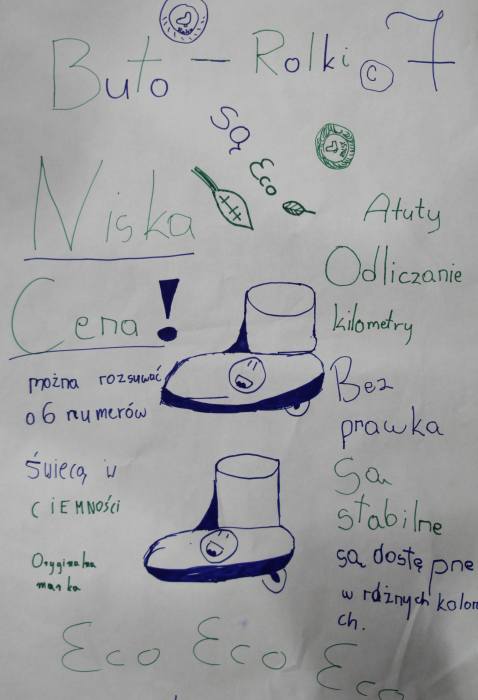 Buto - Rolki © 7
Są
Eco
Niska
Cena!
można rozsuwać
o 6 numerów
Świecą w
CiEMNOŚCi
Oryginalna
marka
Atuty
Odliczanie
kilometry
Bez
prawka
Są
stabilne
są dostępne
w różnych kolorch.
Eco Eco Eco